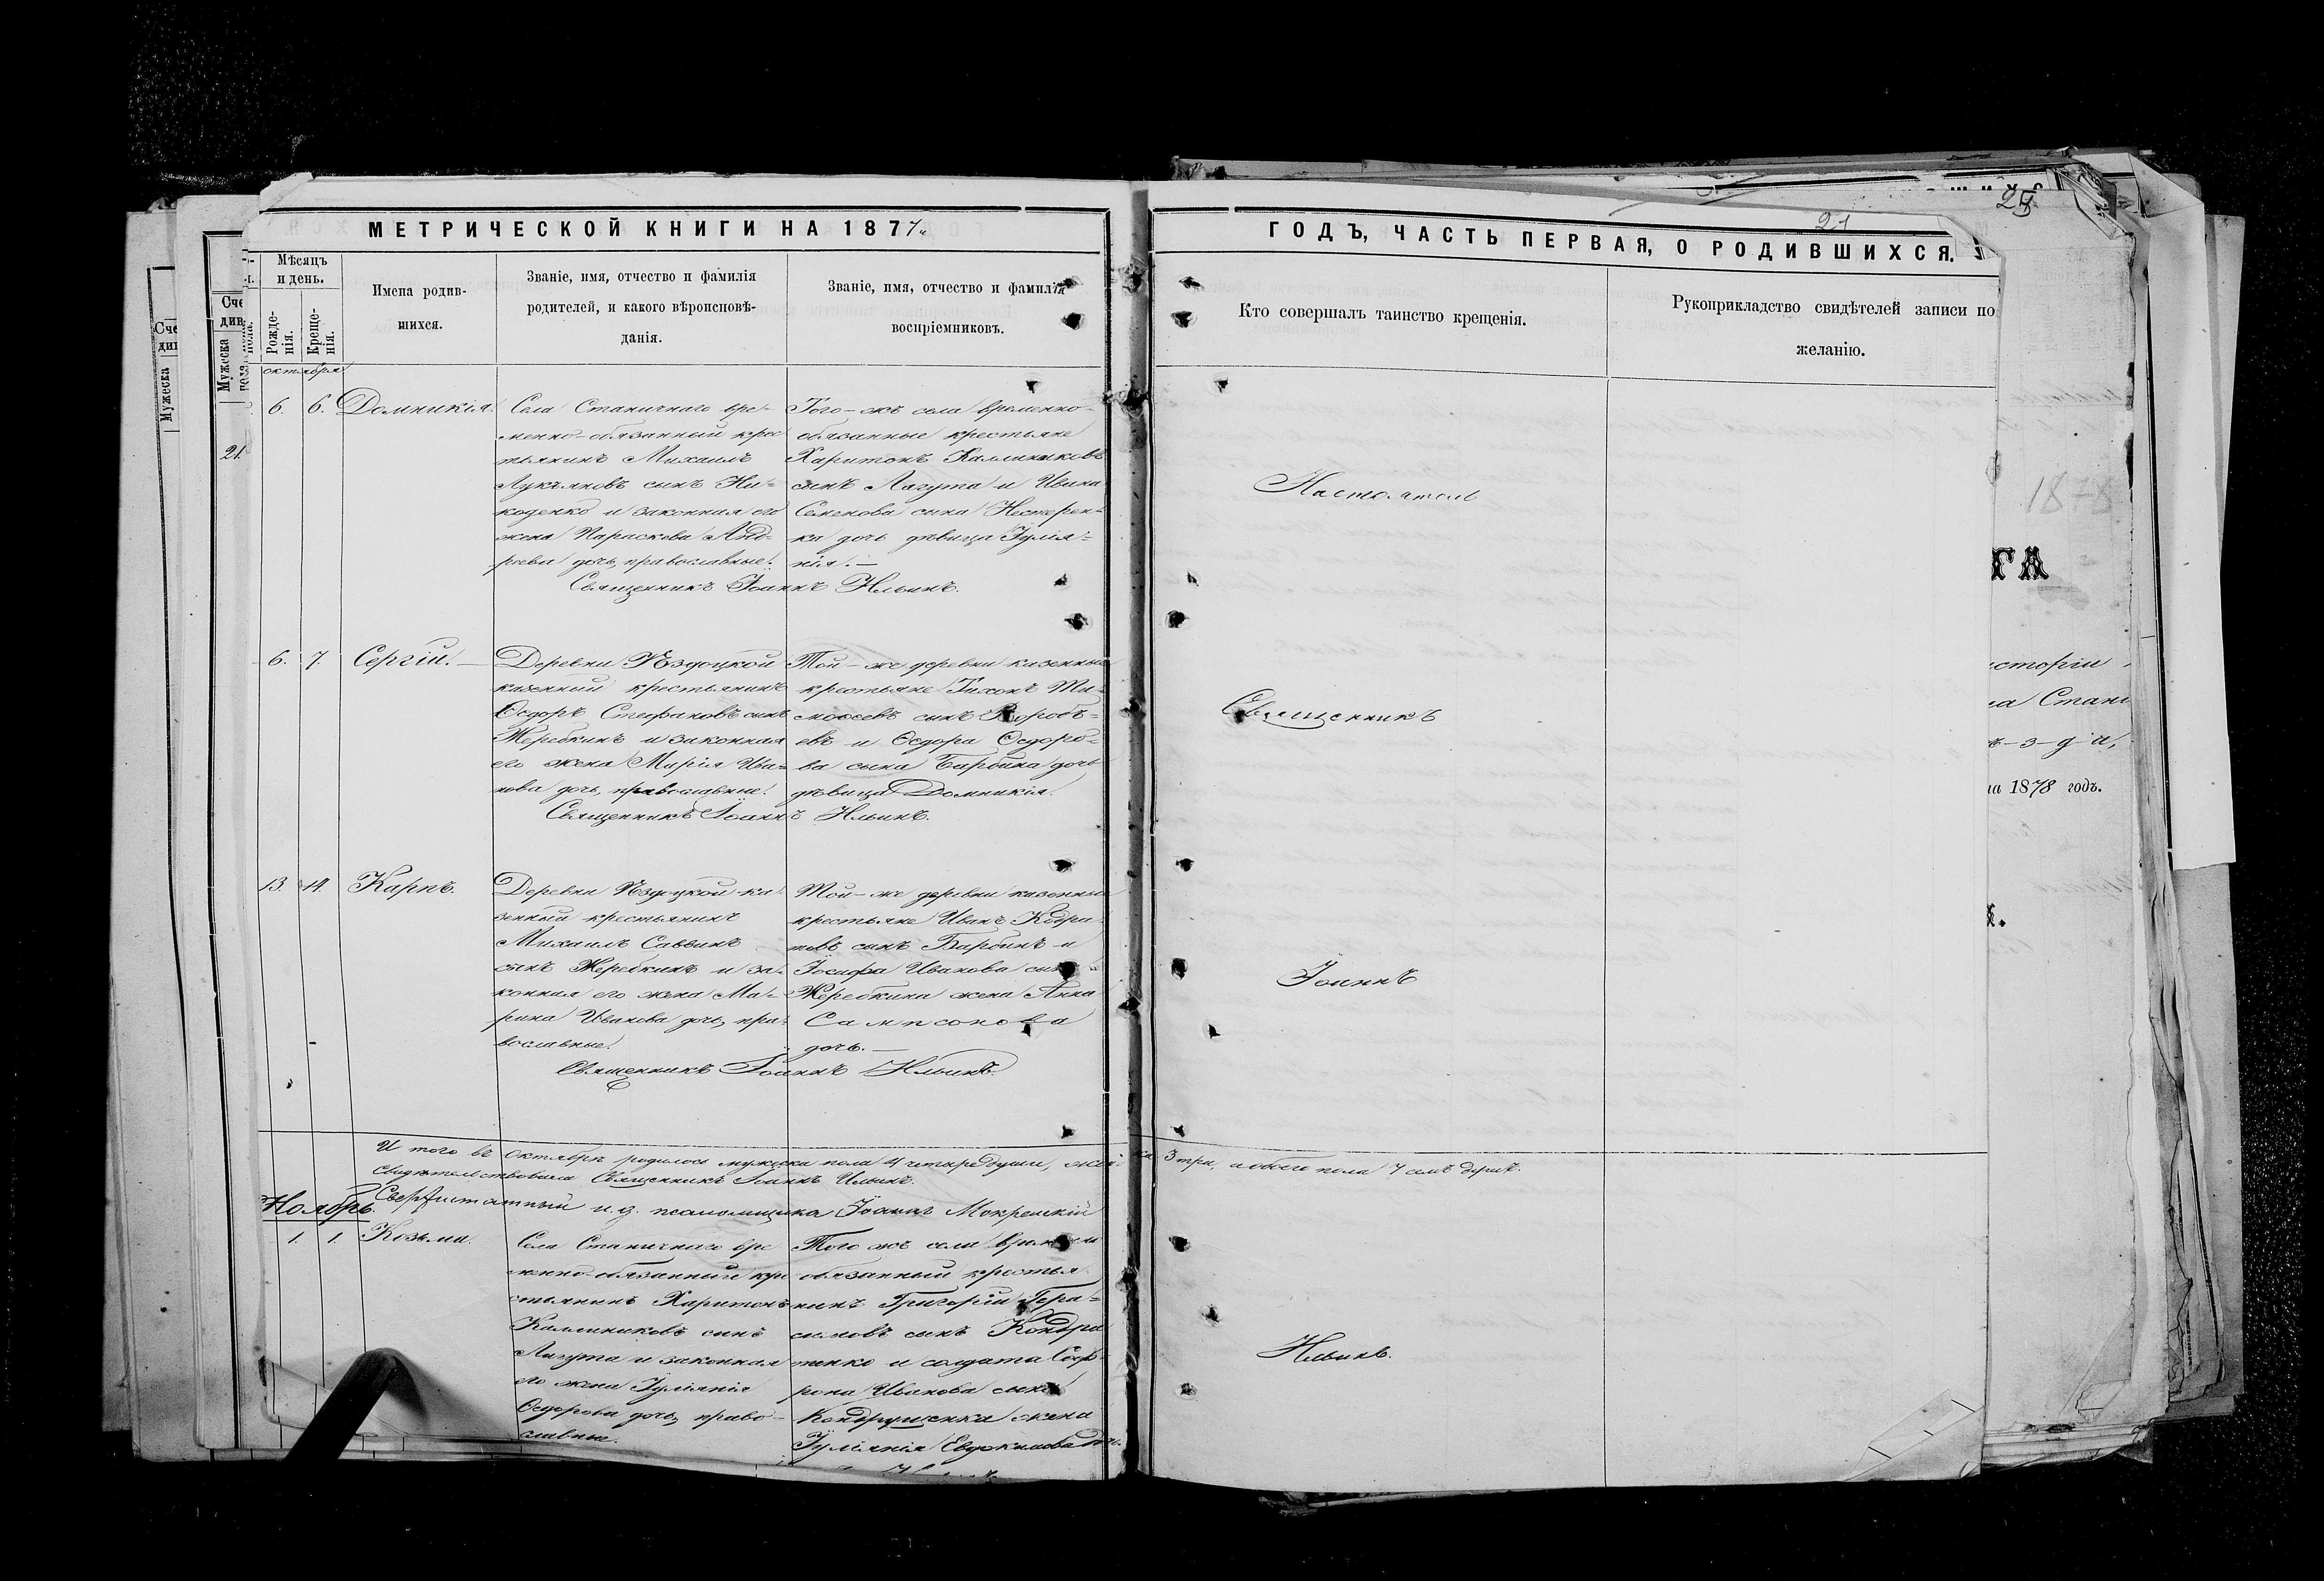 МЕТРИЧЕСКОЙ КНИГИ НА 1877
ГОДЪ, ЧАСТЬ ПЕРВАЯ, О РОДИВШИХСЯ.
21
25
Мѣсяцъ и день.
Рожденія.
Крещенія.
Имена родившихся.
Званіе, имя, отчество и фамилія
родителей, и какого вѣроисповѣ-
данія.
Званіе, имя, отчество и фамилія
воспріемниковъ.
Кто совершалъ таинство крещенія.
Рукоприкладство свидѣтелей записи по
желанію.
Мужеска
21.
октября
6. 6. Домникія.
Села Станичнаго вре-
менно-обязанный крес
тьянинъ Михаилъ
Лукъяновъ сынъ Ни-
коденко и законная его
жена Параскева
дочь, православные.
Того-жъ села временно-
обязанные крестьяне
Харитонъ Каллиниковъ
сынъ Лагута и Ивана
Семенова сына Нестерен-
ка дочь дѣвица Іуліа-
нія.—
Священникъ Іоаннъ Ильинъ.
6. 7. Сергій.—
Деревни Ѣздоцкой
казенный крестьянинъ
Ѳедоръ Стефановъ сынъ
Жеребкинъ и законная
его жена Марія Ива-
нова дочь, православные.
Той-же деревни казенные
крестьяне Тихонъ Ти-
моѳеевъ сынъ Воробь-
евъ и Ѳедора Ѳедоро-
ва сына Барбина дочь
дѣвица Домникія.
Священникъ Іоаннъ Ильинъ.
13. 14. Карпъ.
Деревни Ѣздоцкой ка-
зенный крестьянинъ
Михаилъ Саввинъ
сынъ Жеребкинъ и за-
конная его жена Ма-
рина Иванова дочь, пра-
вославные.
Той-же деревни казенные
крестьяне Иванъ
сынъ Барбинъ и
Іосифа Иванова сына
Жеребкина жена Анна
Сампсонова
дочь.—
Священникъ Іоаннъ Ильинъ.
Настоятель
Священникъ
Іоаннъ
Ильинъ.
И того въ Октябрѣ родилось мужеска пола 4 четыре души, женска 3 три, а обоего пола 7 семь душъ.
Свидѣтельствовали Священникъ Іоаннъ Ильинъ.
Сверхштатный и.д. псаломщика Іоаннъ Мокренскій
Ноябрь.
1. 1. Козьма.
Села Станичнаго вре
менно-обязанный кре
стьянинъ Харитонъ
Каллиниковъ сынъ
Лагута и законная
его жена Іуліанія
Ѳедорова дочь, право-
славные.
Того жъ села временно
обязанный крестья
нинъ Григорій Гера-
симовъ сынъ Кондра
тенко и солдата Соф-
рона Иванова сына
Кондрушенка жена
Іуліанія Евдокимова дочь.
1878
ГА
сторіи
Стани
з-д-а,
на 1878 годъ.